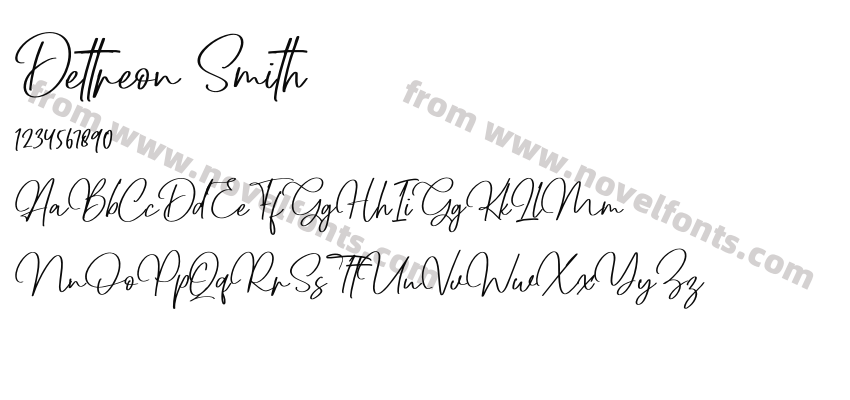 Dettreon Smith
1234567890
AaBbCcDdEeFfGgHhIiGgKkLlMm
NnOoPpQqRrSsTtUuVvWwXxYyZz
from www.novelfonts.com
from www.novelfonts.com